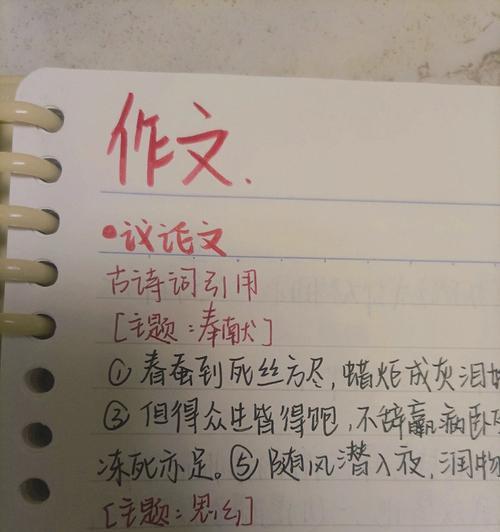 作文.
•议论文
古诗词引用
[主题:奉献]
①春蚕到死丝方尽,蜡炬成灰泪
③但得众生皆得饱,不辞羸病卧
冻死亦足。⑤随风潜入夜,润物
[主题:思乡]